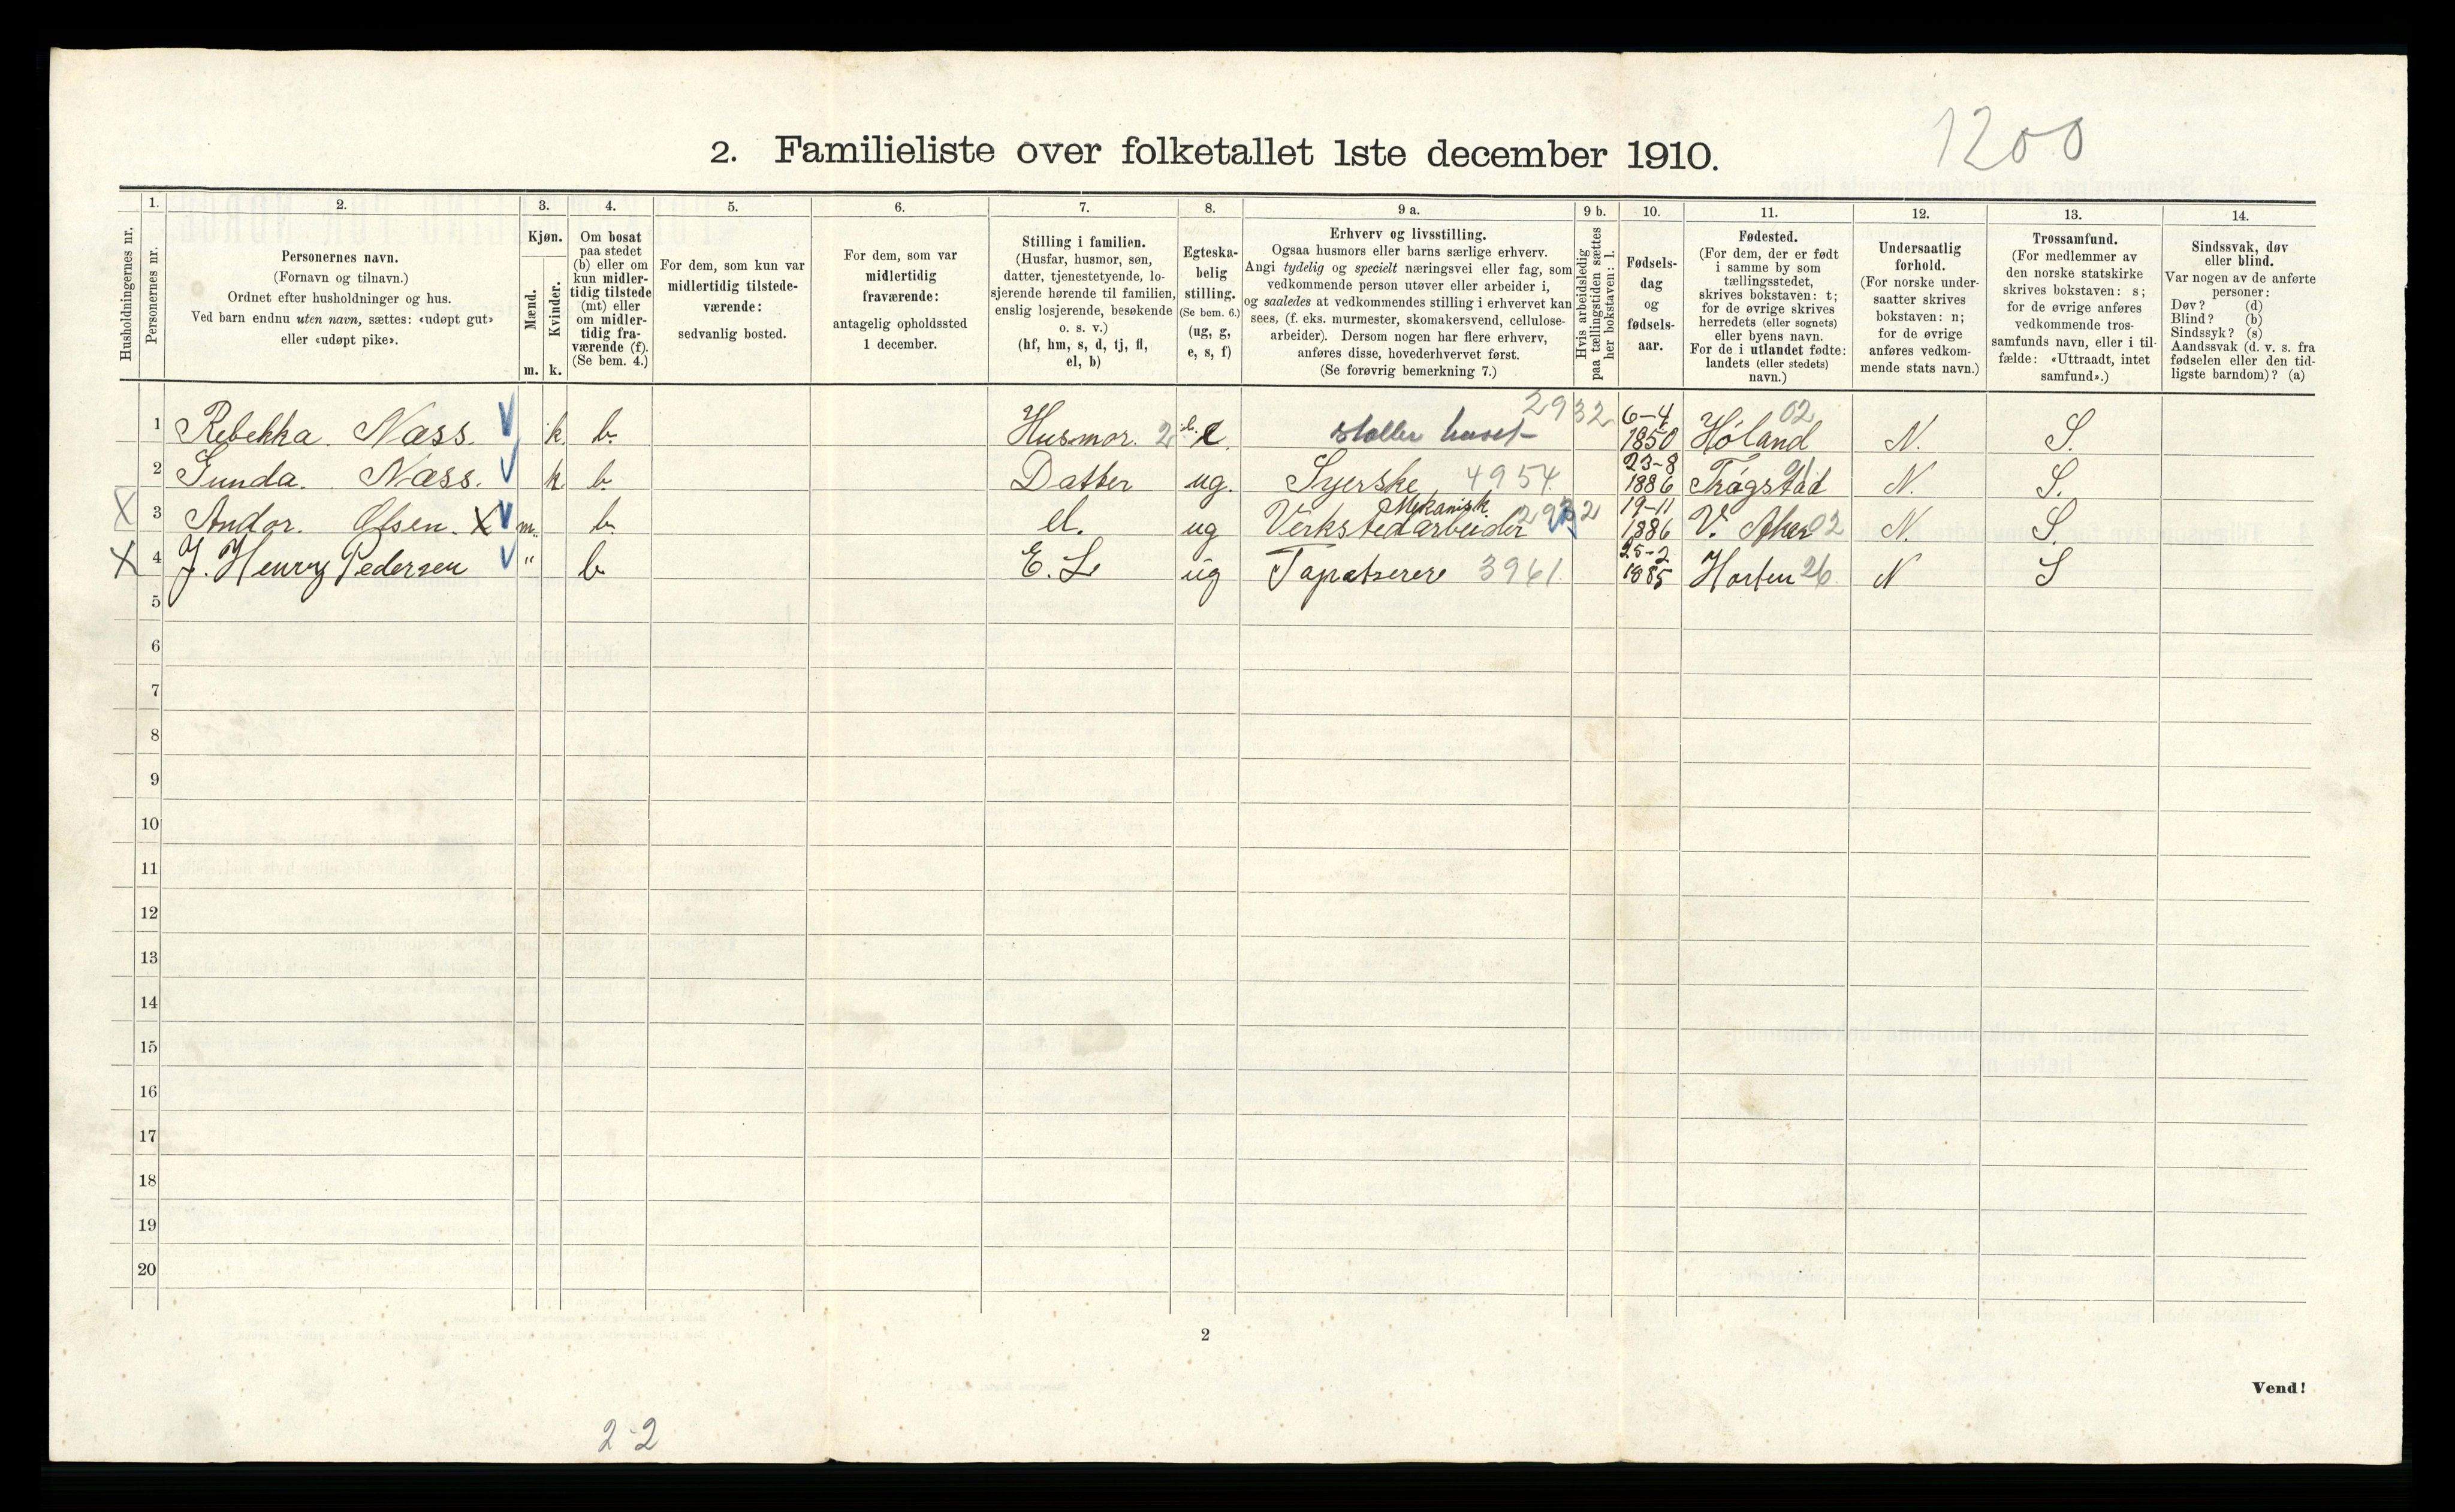 1200
2. Familieliste over folketallet 1ste december 1910.
Husholdningernes nr.
1.
Personernes nr.
2.
Personernes navn.
(Fornavn og tilnavn.)
Ordnet efter husholdninger og hus.
Ved barn endnu uten navn, sættes: «udøpt gut»
eller «udøpt pike».
3.
Kjøn.
Mænd.
Kvinder.
m. k.
4.
Om bosat
paa stedet
(b) eller om
kun midler-
tidig tilstede
(mt) eller
om midler-
tidig fra-
værende (f).
(Se bem. 4.)
5.
For dem, som kun var
midlertidig tilstede-
værende:
sedvanlig bosted.
6.
For dem, som var
midlertidig
fraværende:
antagelig opholdssted
1 december.
7.
Stilling i familien.
(Husfar, husmor, søn,
datter, tjenestetyende, lo-
sjerende hørende til familien,
enslig losjerende, besøkende
o. s. v.)
(hf, hm, s, d, tj, fl,
el, b)
8.
Egteska-
belig
stilling.
(Se bem. 6.)
(ug, g,
e, s, f)
9 a.
Erhverv og livsstilling.
Ogsaa husmors eller barns særlige erhverv.
Angi tydelig og specielt næringsvei eller fag, som
vedkommende person utøver eller arbeider i,
og saaledes at vedkommendes stilling i erhvervet kan
sees, (f. eks. murmester, skomakersvend, cellulose-
arbeider). Dersom nogen har flere erhverv,
anføres disse, hovederhvervet først.
(Se forøvrig bemerkning 7.)
9 b.
Hvis arbeidsledig
paa tællingstiden sættes
her bokstaven: l.
10.
Fødsels-
dag
og
fødsels-
aar.
11.
Fødested.
(For dem, der er født
i samme by som
tællingsstedet,
skrives bokstaven: t;
for de øvrige skrives
herredets (eller sognets)
eller byens navn.
For de i utlandet fødte:
landets (eller stedets)
navn.)
12.
Undersaatlig
forhold.
(For norske under-
saatter skrives
bokstaven: n;
for de øvrige
anføres vedkom-
mende stats navn.)
13.
Trossamfund.
(For medlemmer av
den norske statskirke
skrives bokstaven: s;
for de øvrige anføres
vedkommende tros-
samfunds navn, eller i til-
fælde: «Uttraadt, intet
samfund».)
14.
Sindssvak, døv
eller blind.
Var nogen av de anførte
personer:
Døv? (d)
Blind? (b)
Sindssyk? (s)
Aandssvak (d. v. s. fra
fødselen eller den tid-
ligste barndom)? (a)
1 Rebekka. Næss. k. b. Husmor. 2 e. steller huset 2932 6-4 1850 Høland 02 N. S.
2 Gunda. Næss. k b. Datter ug. Syerske 4954 23-8 1886 Trøgstad 01 N. S.
X 3 Andor. Olsen. X m. b. el. ug Mekanisk. Verkstedarbeider 2932 19-11 1886 V. Aker 02 N. S.
X 4 J. Henry Pedersen " b E. L. ug Tapetserer 3961 25-2 1885 Horten 26 N S
5
6
7
8
9
10
11
12
13
14
15
16
17
18
19
20
2
Vend!
2-2